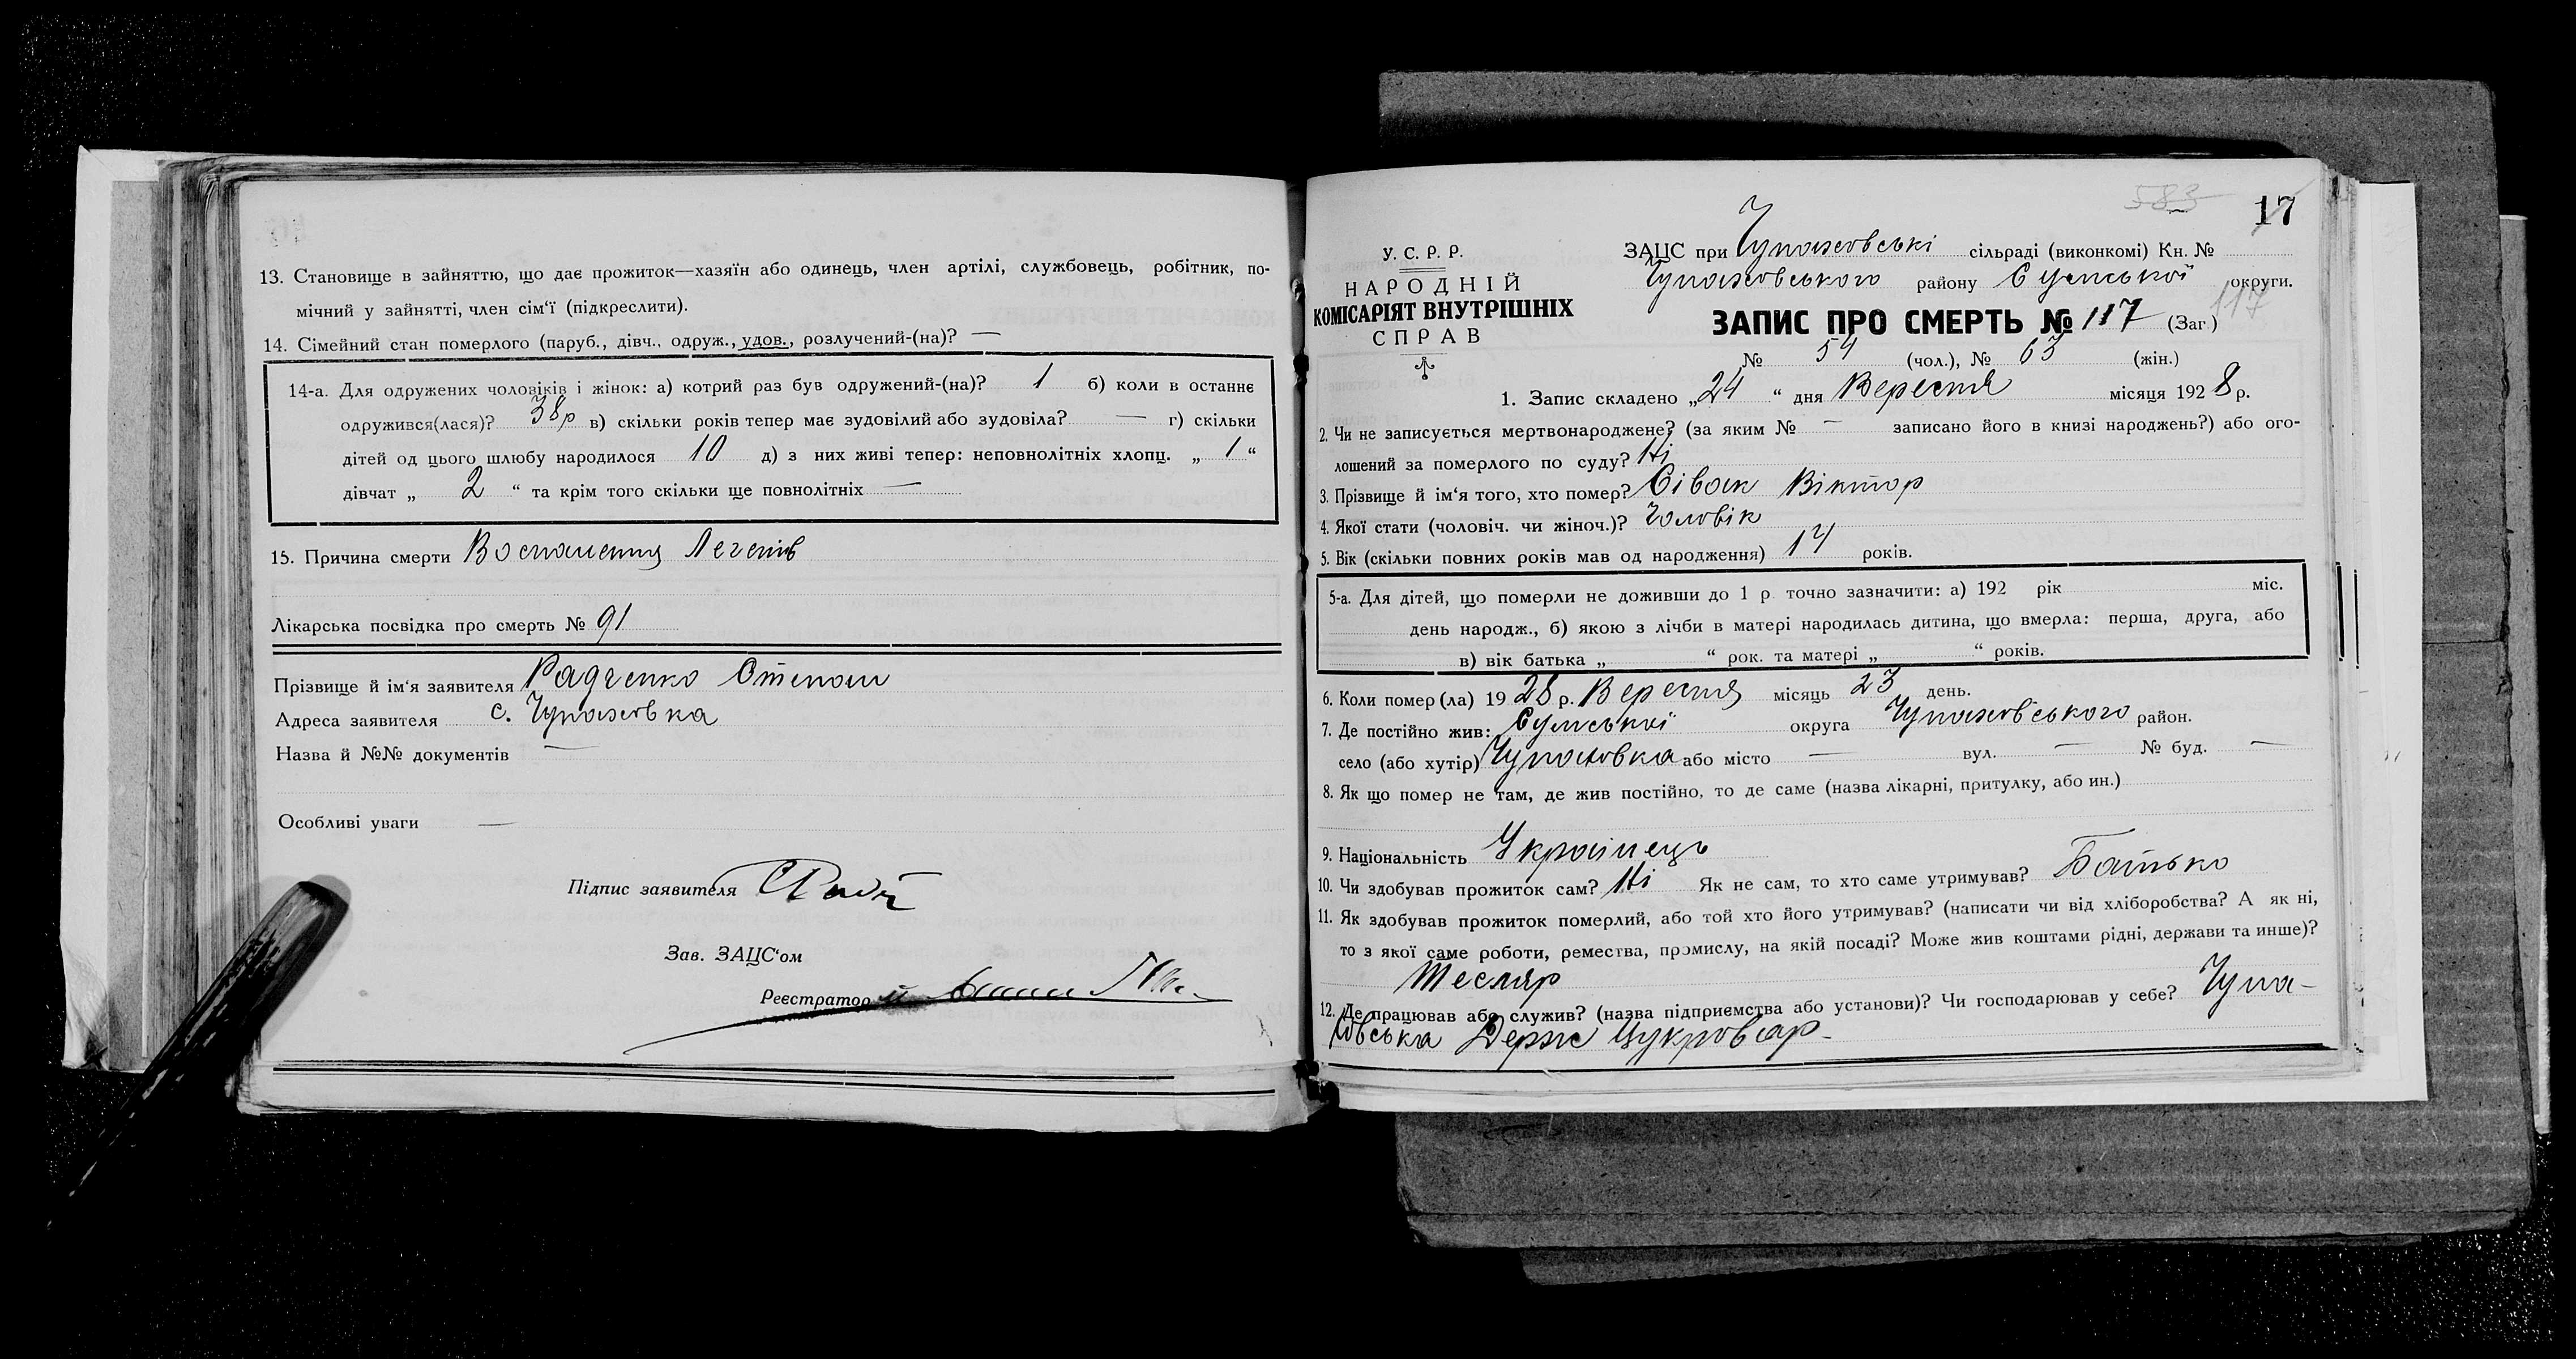 13. Становище в зайняттю, що дає прожиток—хазяїн або одинець, член артілі, службовець, робітник, по-
мічний у зайнятті, член сім‘ї (підкреслити).
14. Сімейний стан померлого (паруб., дівч., одруж., удов., розлучений-(на)? —
14-а. Для одружених чоловіків і жінок: а) котрий раз був одружений-(на)? 1 б) коли в останнє
одружився(лася)? 38р в) скільки років тепер має зудовілий або зудовіла? — г) скільки
дітей од цього шлюбу народилося 10 д) з них живі тепер: неповнолітніх хлопц. „ 1 “
дівчат „ 2 “ та крім того скільки ще повнолітніх —
15. Причина смерти Воспаления Легенів
Лікарська посвідка про смерть № 91
Прізвище й ім‘я заявителя Радченко Степан
Адреса заявителя с. Чупаховка
Назва й №№ документів —
Особливі уваги —
Підпис заявителя
Зав. ЗАЦС‘ом
Реєстратор
583 17
У. С. Р. Р.
НАРОДНІЙ
КОМІСАРІЯТ ВНУТРІШНІХ
СПРАВ
ЗАЦС при Чупаховські сільраді (виконкомі) Кн. №
Чупаховського району Сумської округи.
117
ЗАПИС ПРО СМЕРТЬ № 117 (Заг.)
№ 54 (чол.), № 63 (жін.)
1. Запис складено „24“ дня Вересня місяця 1928 р.
2. Чи не записується мертвонароджене? (за яким № — записано його в книзі народжень?) або ого-
лошений за померлого по суду? Ні
3. Прізвище й ім‘я того, хто помер? Сівак Віктор
4. Якої стати (чоловіч. чи жіноч.)? Чоловік
5. Вік (скільки повних років мав од народження) 14 років.
5-а. Для дітей, що померли не доживши до 1 р. точно зазначити: а) 192 рік міс.
день народж., б) якою з лічби в матері народилась дитина, що вмерла: перша, друга, або
в) вік батька „ “ рок. та матері „ “ років.
6. Коли помер (ла) 1928 р. Вересня місяць 23 день.
7. Де постійно жив: Сумської округа Чупаховського район.
село (або хутір) Чупаховка або місто — вул. — № буд. —
8. Як що помер не там, де жив постійно, то де саме (назва лікарні, притулку, або ин.)
9. Національність Українець
10. Чи здобував прожиток сам? Ні Як не сам, то хто саме утримував? Батько
11. Як здобував прожиток померлий, або той хто його утримував? (написати чи від хліборобства? А як ні,
то з якої саме роботи, ремества, промислу, на якій посаді? Може жив коштами рідні, держави та инше)?
Тесляр
12. Де працював або служив? (назва підприємства або установи)? Чи господарював у себе? Чупа-
ховська Держ Цукровар-